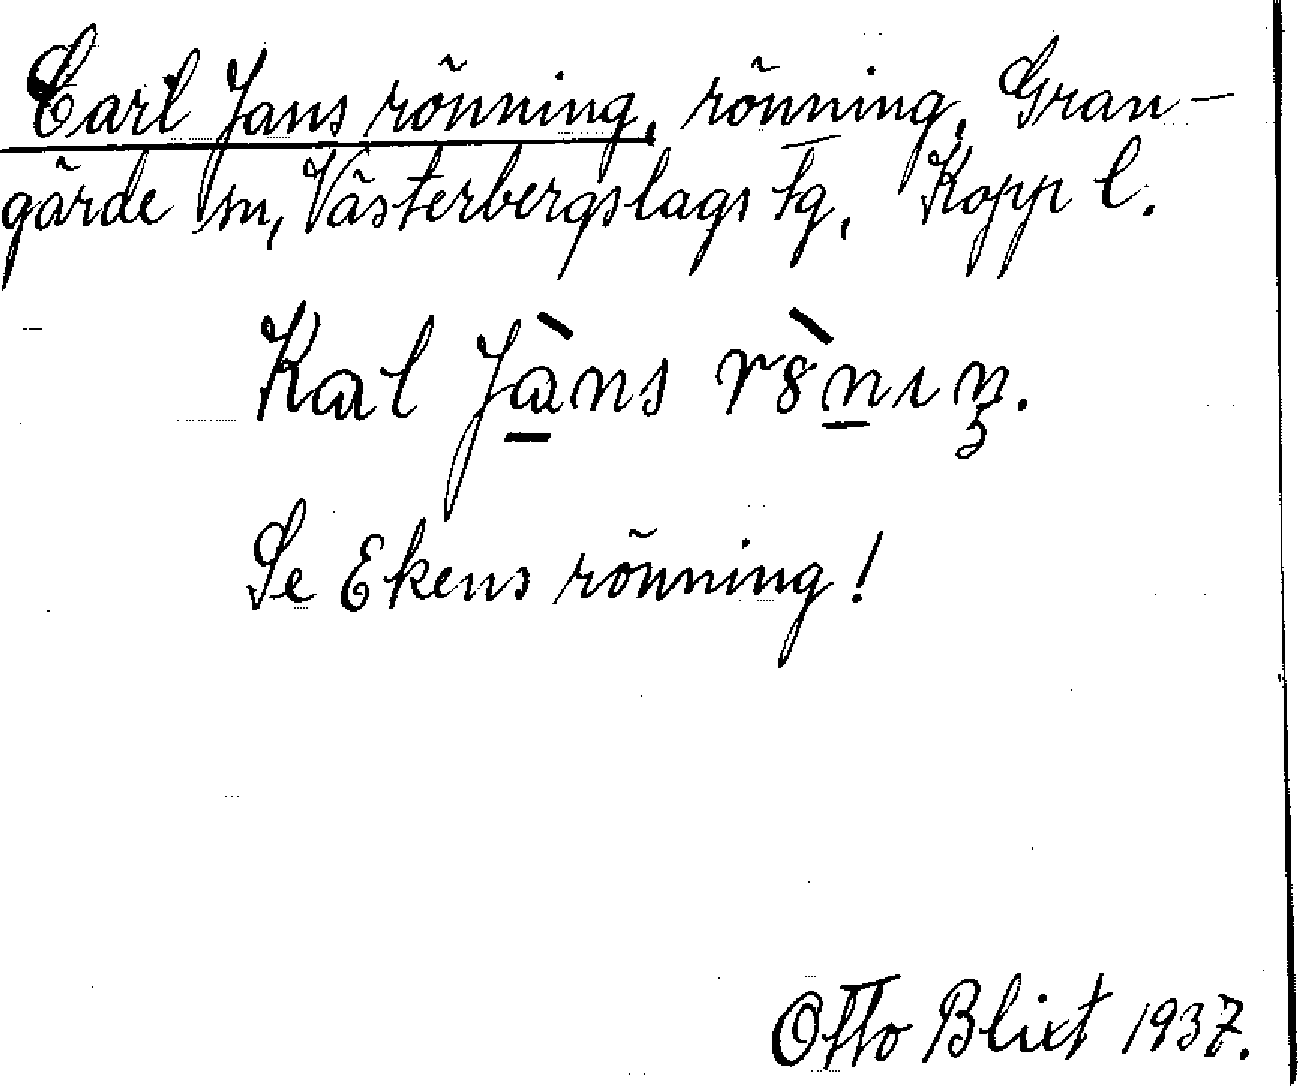 Carl Jans rönning, rönning, Gran-
gärde sn, Västerbergslags tg, Kopp l.
Kal Jàns r8̀nıŋ.
Se Ekens rönning!
Otto Blixt 1937.